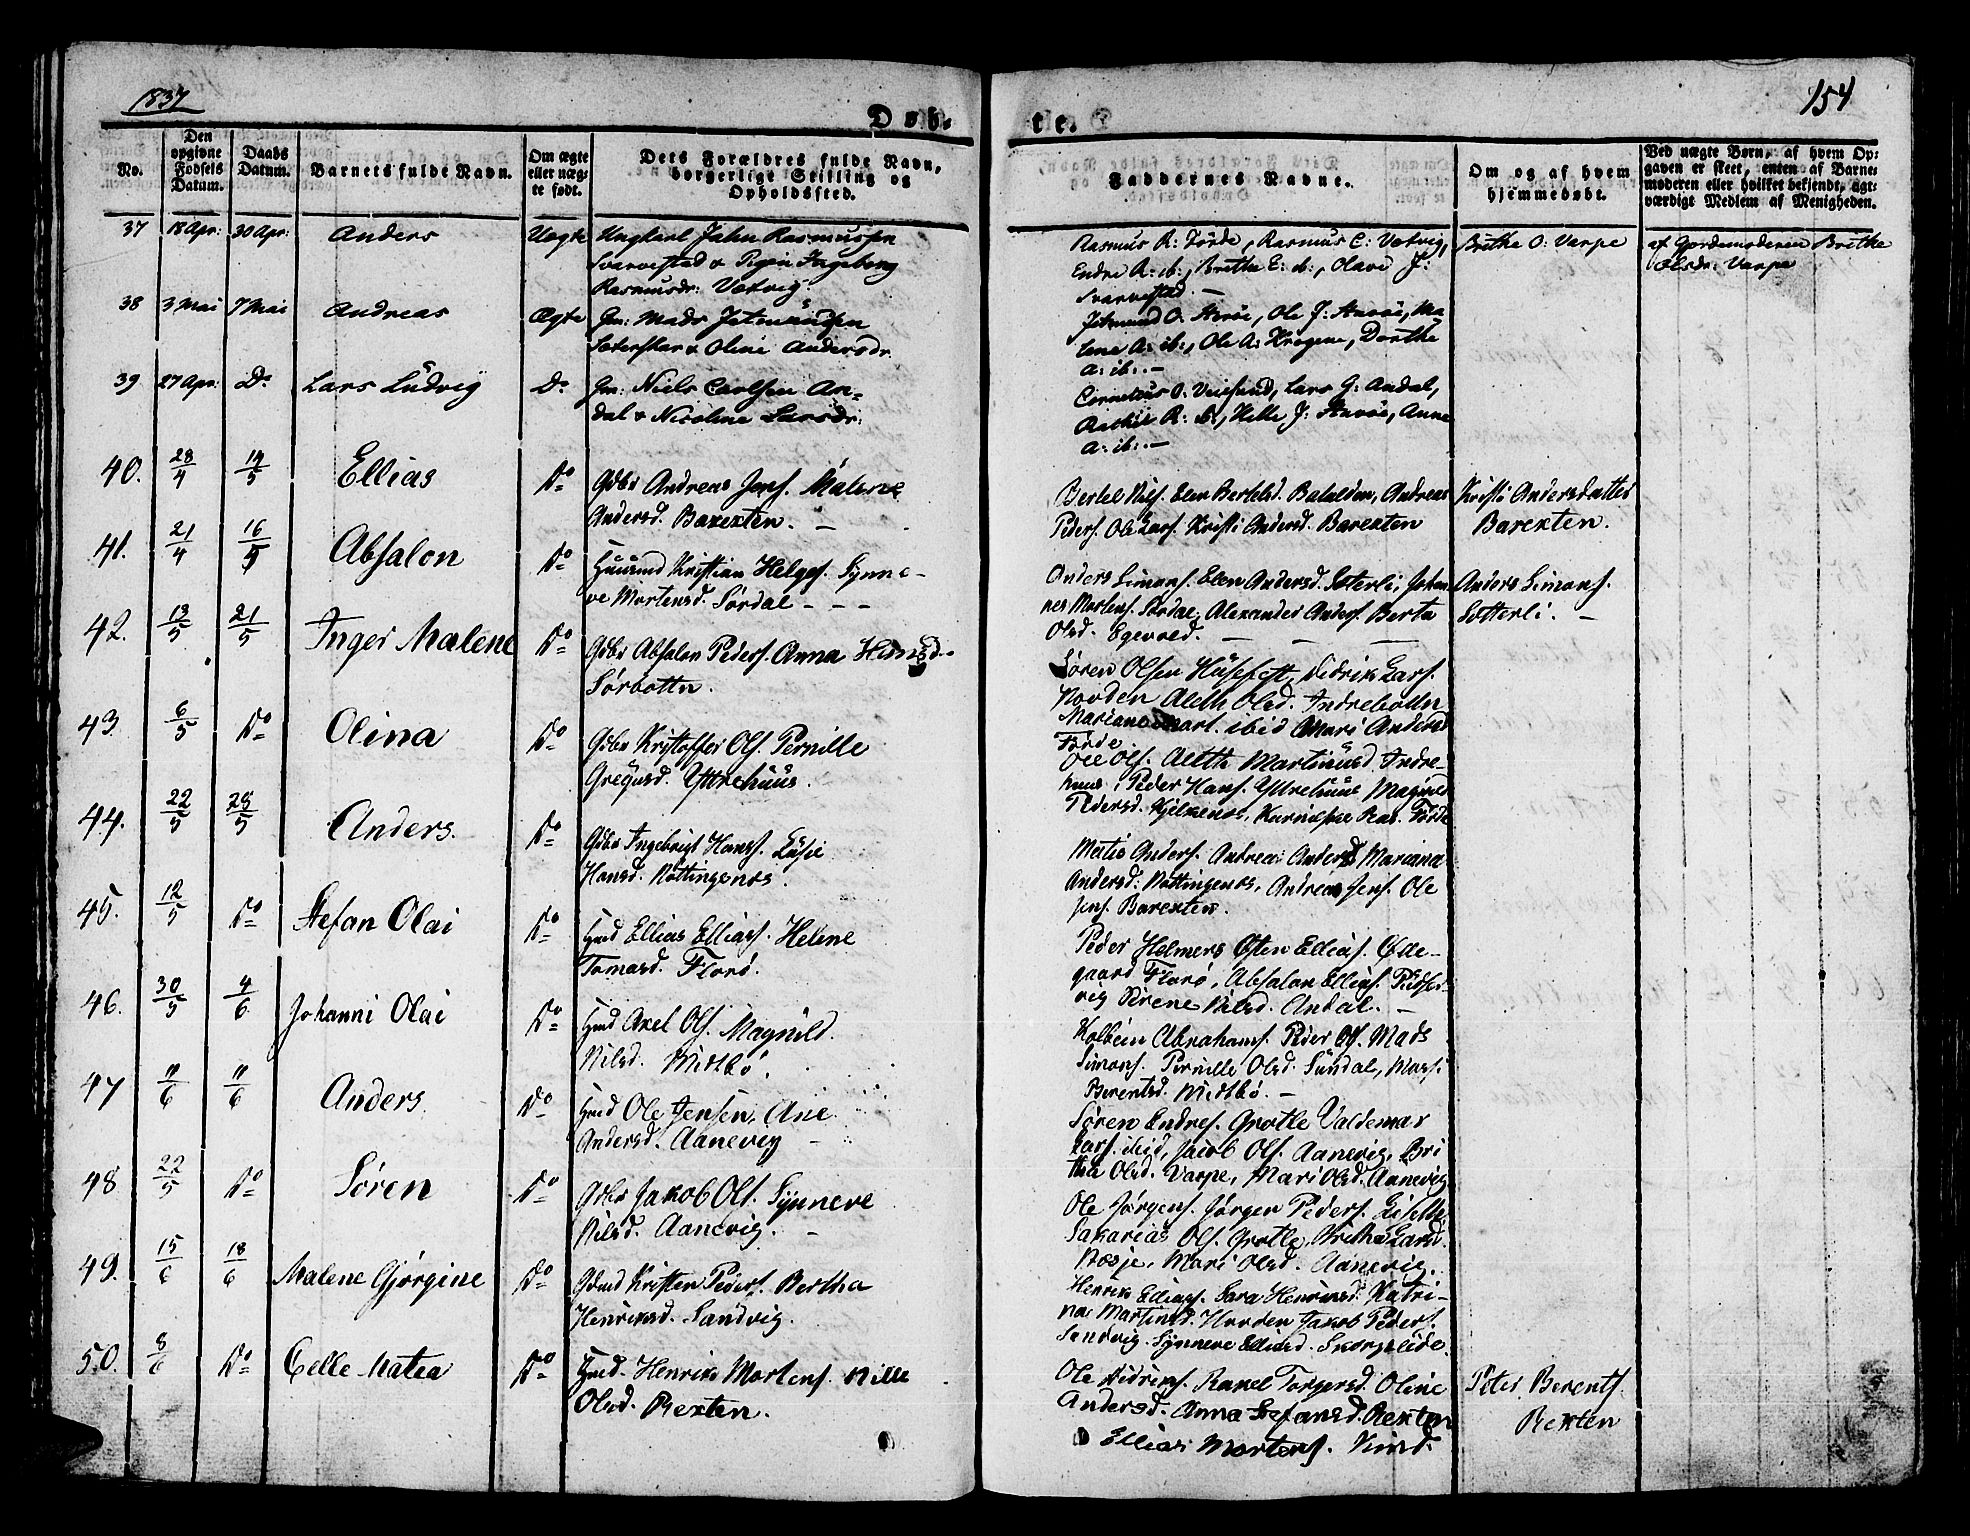 1837
154
Døb-
te.
No.
Den opgivne Fødsels Datum.
Daabs Datum.
Barnets fulde Navn.
Om ægte eller uægte født.
Dets Forældres fulde Navn, borgerlige Stilling og Opholdssted.
Faddernes Navne.
Om og af hvem hjemmedøbt.
Ved uægte Børn, af hvem Opgaven er skeet, enten af Barnemoderen eller hvilket bekjendt, agtværdigt Medlem af Menigheden.
37 18 Apr: 30 Apr: Anders Uægte Ungkarl John Rasmussen
Svarvestad & Pigen Ingeborg
Rasmusdr: Vatvig.
Rasmus R: Förde, Rasmus E: Vatvig,
Endre R: ib:, Brithe E: ib:, Olave J:
Svarvestad. —
Brithe O: Varpe
af Gjordemoderen Brithe
Olsdr: Varpe
38 3 Mai 7 Mai Andreas Ægte Gm: Mads Jetmundsen
& Oline Andersdr.
Jetmund O. Ole J: Ma
lene A: ib:, Ole A: Dorthe
A: ib:. —
39 27 Apr: Do Lars Ludvig Do Gm: Niels Carlsen An-
dal & Nicoline Larsdr:
Cornelius O: Veiesund, Lars G: Andal,
R: ib:, Helle J: Anne
A: ib:. —
40. 28/4 14/5 Ellias Do Gdbr Andreas Jens. Malene
Andersd. Barexten. —
Bertel Nils. Elen Bertelsd. Batalden, Andreas
Peders. Ole Lars. Kristi Andersd. Barexten
Kristi Andersdatter
Barexten.
41. 21/4 16/5 Absalon Do Huusmd Kristian Helges. Synne-
ve Mortensd. Sørdal - - -
Anders Simons. Elen Andersd. Sæterli, Johan
nes Mortens. Sørdal, Alexander Anders. Berta
Olsd. Egevold. —
Anders Simons.
Sætterli. —
42. 13/5 21/5 Inger Malene Do Gdbr Absalon Peders. Anna Hansd.
Sørbottn.
Søren Olsen Husefest, Didrik Lars.
Norden Aleth Olsd. Indrebottn
Mariane ibid Mari Andersd
Førde
43. 6/5 Do Olina Do Gdbr Kristoffer Ols. Pernille
Gregusd. Yttrehuus.
Ole Ols. Aleth Martinusd. Indre-
huus, Peder Hans. Yttrehuus Magnild
Pedersd. Kjelkenes, Ras. Førde
44. 22/5 28/5 Anders. Do Gdbr Ingebrigt Hans. Lusie
Hansd. Nottingenes.
Matis Anders. Andrea Andersd. Mariana
Andersd: Nottingenes, Andreas Jens. Ole
Jens. Barexten.
45. 12/5 Do Stefan Olai Do Hmd Ellias Ellias. Helene
Tomasd. Florø.
Peder Helmers Østen Ellias. Øde-
gaard Florø, Absalon Ellias.
vig Sirene Nilsd. Andal. —
46. 30/5 4/6 Johanni Olai Do Hmd Axel Ols. Magnild
Nilsd. Midtbø.
Kolbein Abrahams. Peder Ols. Mads
Simons. Pernille Olsd. Sundal,
Berentsd. Midtbø. —
47 11/6 11/6 Anders. Do Hmd Ole Jensen, Ane
Andersd. Aanevig —
Søren Endres. Grotle Valdemar
Lars. ibid, Jacob Ols. Aanevig, Bri
tha Olsd. Varpe, Mari Olsd. Aanevig
48 22/5 Do Søren Do Gdbr Jakob Ols. Synneve
Nilsd. Aanevig. —
Ole Jørgens. Jørgen Peders.
Sakarias Ols. Grotle, Britha Larsd.
Næsje, Mari Olsd. Aanevig.
49. 15/6 18/6 Malene Gjørgine Do Gdmd Kristen Peders. Bertha
Henriksd. Sandvig.
Henrik Ellias. Sara Henriksd. Katri-
na Martinsd. Norden Jakob Peders.
Sandvig. Synneve Elliasd.
50. 8/6 Do Celle Matea Do Hmd. Henrik Mortens. Nille
Olsd. Rexten.
Ole Didriks. Rakel Torgersd. Oline
Andersd. Anna Stefansd. Rexten
Ellias Mortens.
Peter Berents.
Rexten